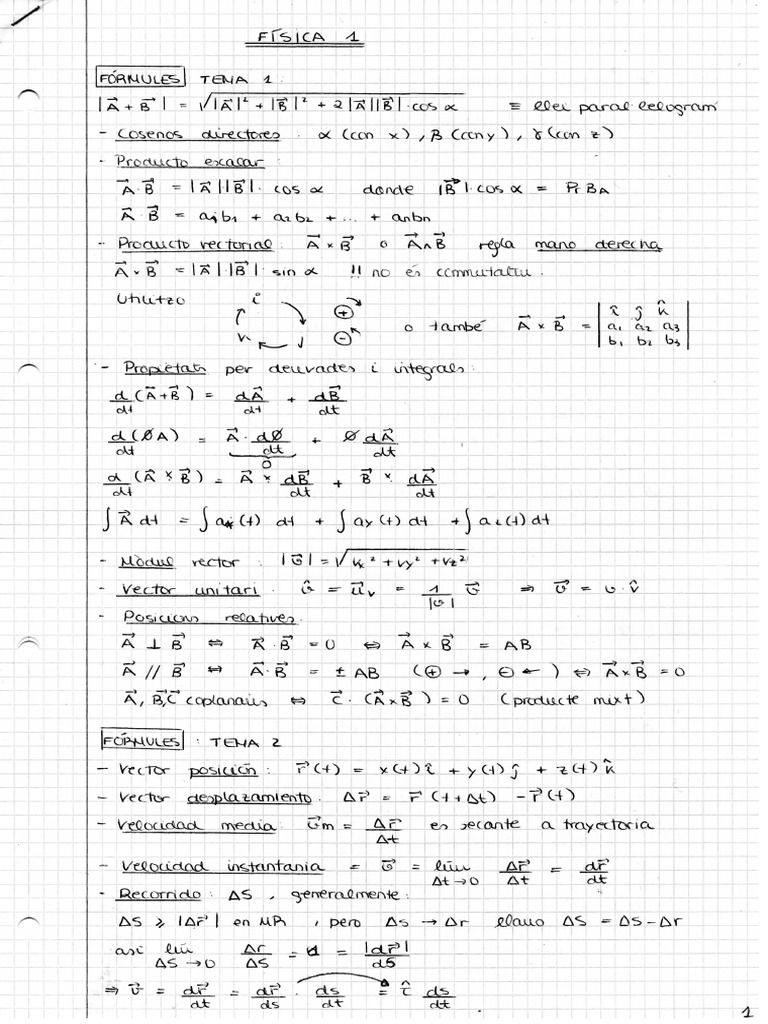 FÍSICA 1
FÓRMULES TEMA 1:
|A⃗ + B⃗| = √(|A⃗|² + |B⃗|² + 2|A⃗||B⃗|·cos α) ≡ llei paral·lelogram
- Cosenos directores: α (con x), β (con y), γ (con z)
- Producto escalar:
A⃗·B⃗ = |A⃗||B⃗|·cos α donde |B⃗|·cos α = Pr B_A
A⃗·B⃗ = a₁b₁ + a₂b₂ + ... + aₙbₙ
- Producto vectorial: A⃗ × B⃗ o A⃗ ∧ B⃗ regla mano derecha
A⃗ × B⃗ = |A⃗|·|B⃗|·sin α !! no és commutatiu.
Utilitzo i j k ⊕ ⊖ o també A⃗ × B⃗ = | î ĵ k̂ |
| a₁ a₂ a₃ |
| b₁ b₂ b₃ |
- Propietats per derivades i integrals:
d/dt (A⃗ + B⃗) = dA⃗/dt + dB⃗/dt
d/dt (∅A) = A⃗·d∅/dt + ∅ dA⃗/dt
0
d/dt (A⃗ × B⃗) = A⃗ × dB⃗/dt + B⃗ × dA⃗/dt
∫ A⃗ dt = ∫ ax(t) dt + ∫ ay(t) dt + ∫ az(t) dt
- Mòdul vector: |v⃗| = √(vx² + vy² + vz²)
- Vector unitari: v̂ = u⃗ᵥ = 1/|v⃗| v⃗ ⇒ v⃗ = v·v̂
- Posicions relatives:
A⃗ ⊥ B⃗ ⇔ A⃗·B⃗ = 0 ⇔ A⃗ × B⃗ = AB
A⃗ // B⃗ ⇔ A⃗·B⃗ = ± AB (⊕ →, ⊖ ←) ⇔ A⃗ × B⃗ = 0
A⃗, B⃗, C⃗ coplanaris ⇔ C⃗·(A⃗ × B⃗) = 0 (producte mixt)
FÓRMULES: TEMA 2
- Vector posición: r⃗(t) = x(t) î + y(t) ĵ + z(t) k̂
- Vector desplazamiento: Δr⃗ = r⃗(t+Δt) - r⃗(t)
- Velocidad media: v⃗m = Δr⃗/Δt es secante a trayectoria
- Velocidad instantania = v⃗ = lim Δt→0 Δr⃗/Δt = dr⃗/dt
- Recorrido: ΔS, generalmente:
ΔS ≥ |Δr⃗| en MR, pero Δs → Δr ΔS = ΔS - Δr
así lim ΔS→0 Δr/ΔS = 1 = |dr⃗|/dS
⇒ v⃗ = dr⃗/dt = dr⃗/ds · ds/dt = τ̂ ds/dt
1